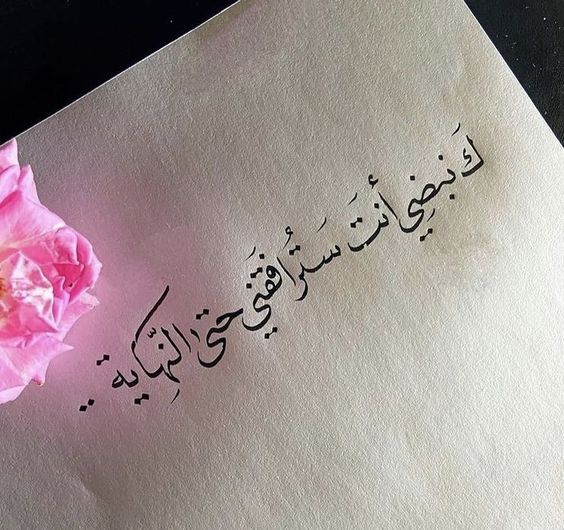 كَ نبضِي أنتَ سَتُرافقَني حتى النِّهَاية ..